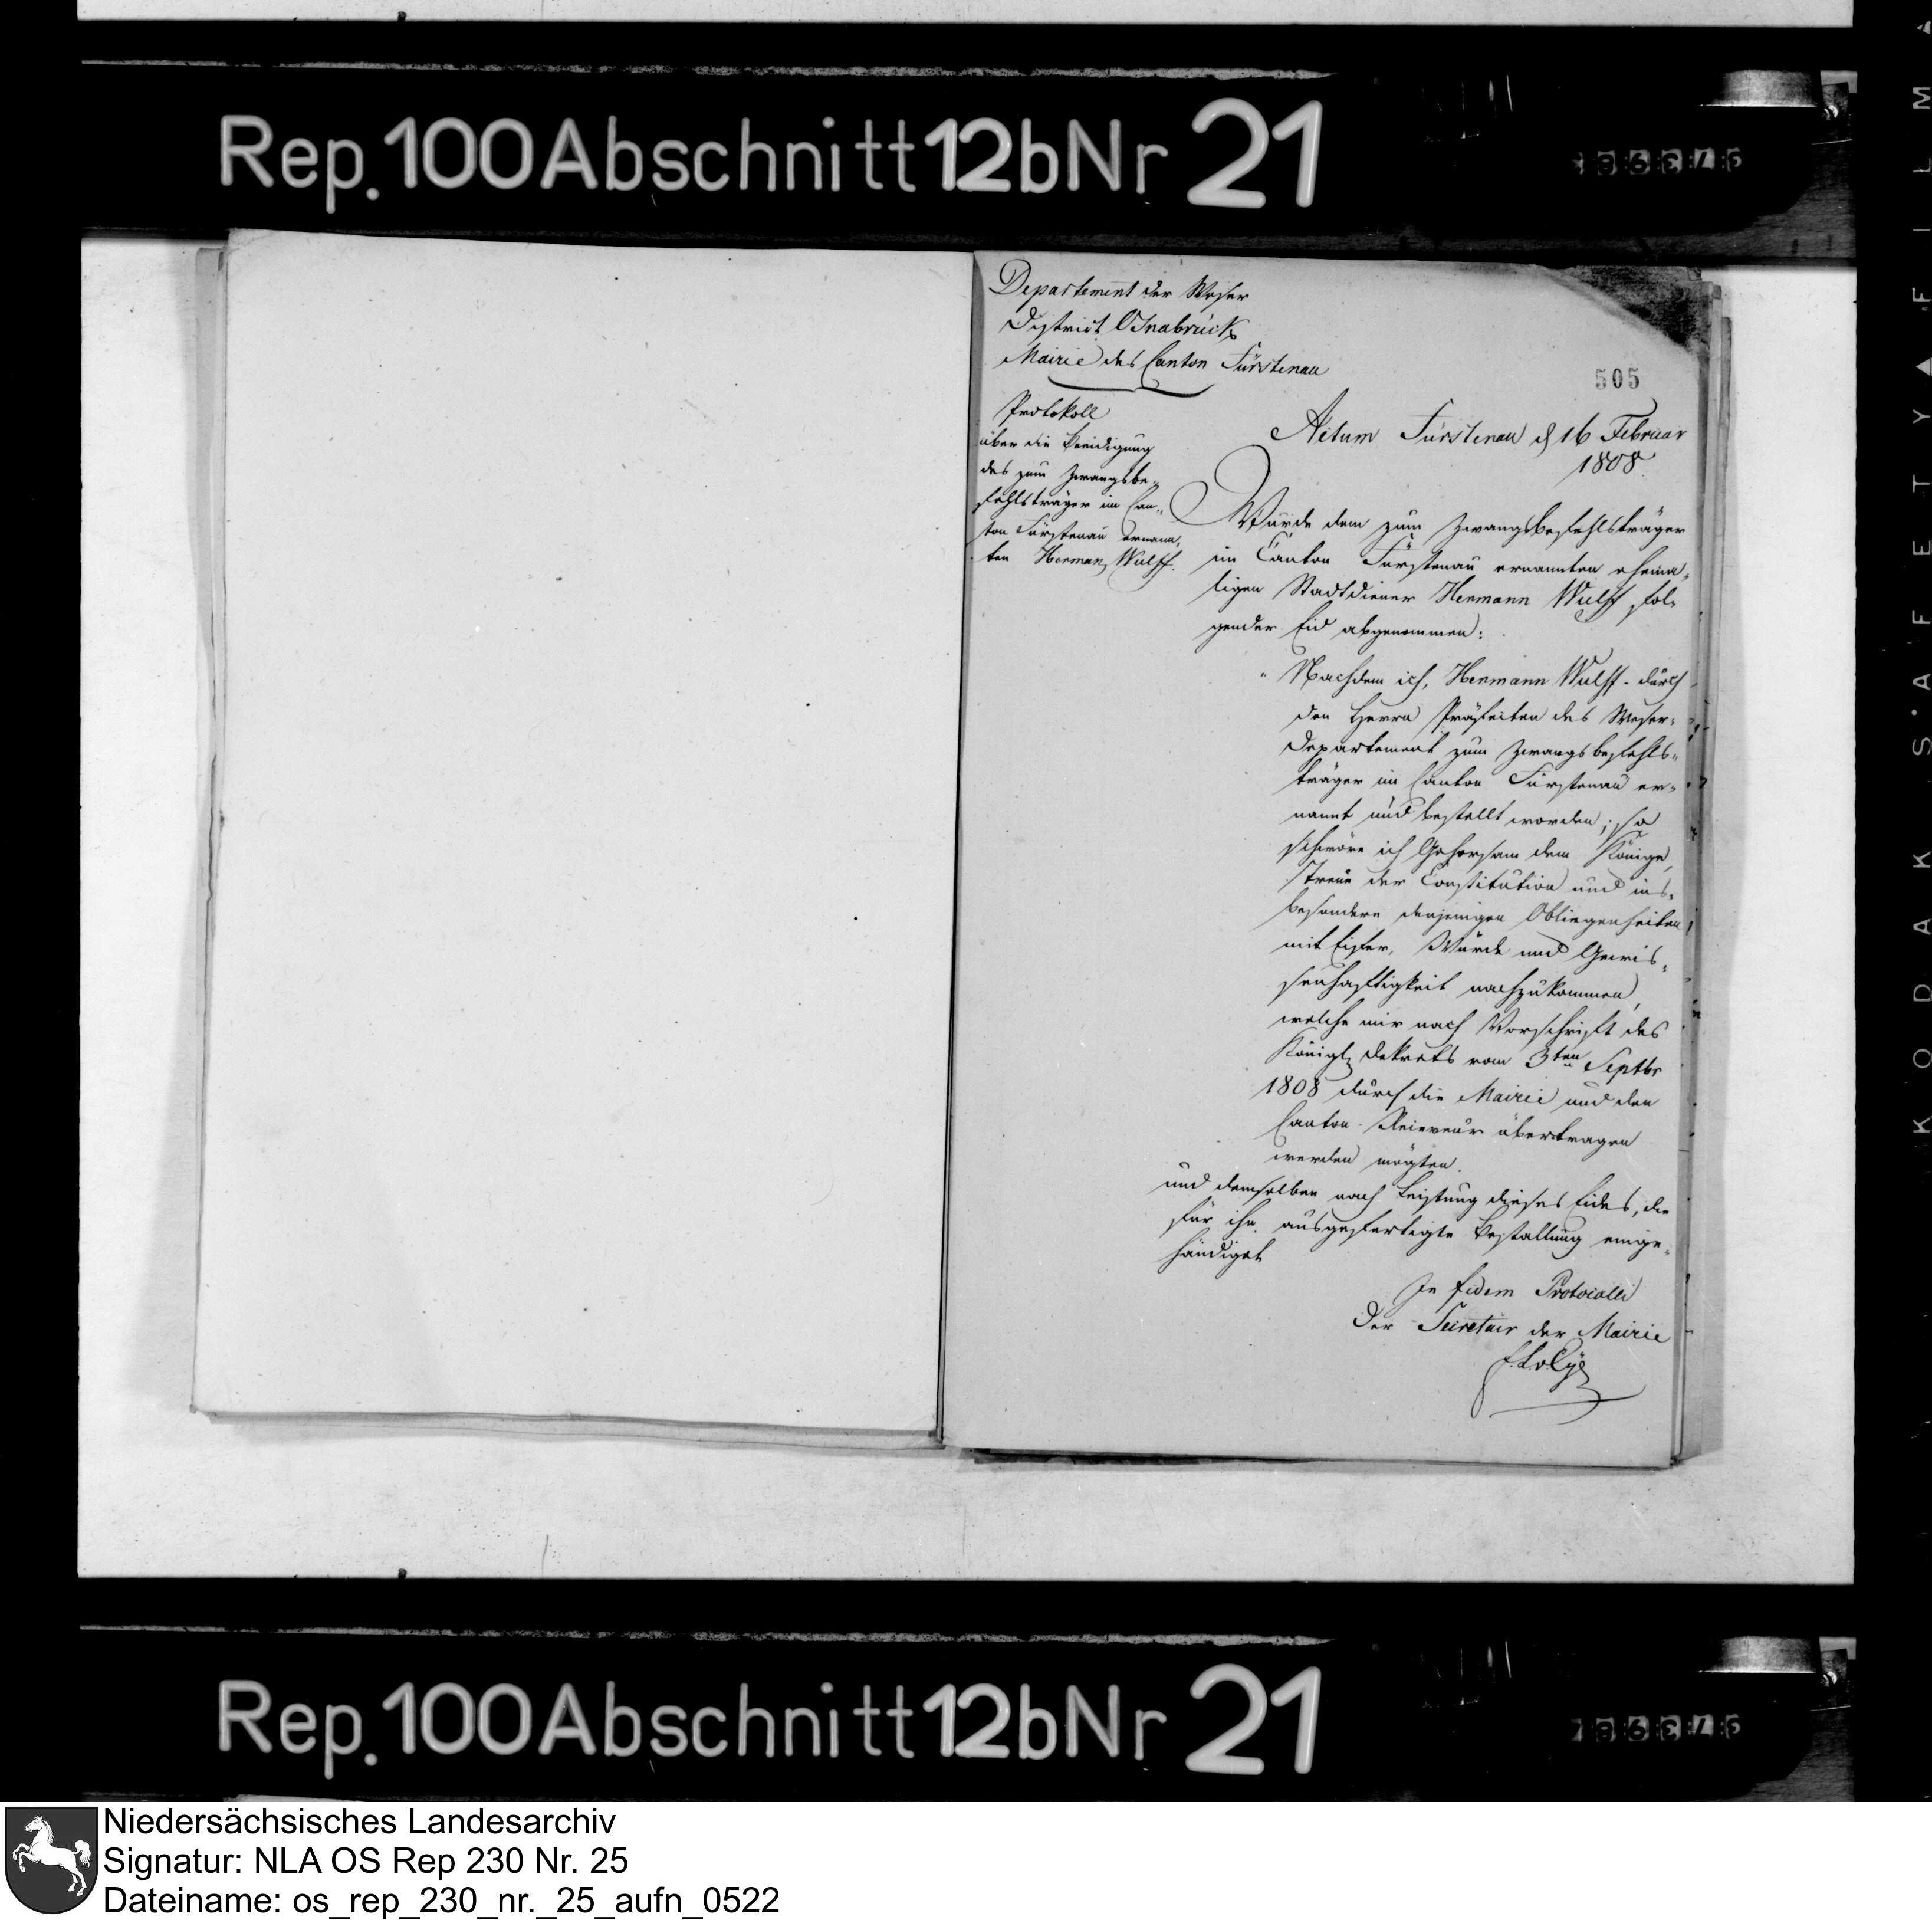 Rep. 100 Abschnitt 12b Nr 21
Departement der Weser
District Osnabrück
Mairie des Canton Fürstenau
505
Protokoll
über die Beeidigung
des zum Zwangsbe-
fehlsträger im Can-
ton Fürstenau ernann-
ten Herman Wulff.
Actum Fürstenau d 16 Februar
1808.
Wurde dem zum Zwangsbefehlsträger
im Canton Fürstenau ernannten ehema-
ligen Stadtdiener Hermann Wulff fol-
gender Eid abgenommen:
" Nachdem ich, Hermann Wulff - durch
den Herrn Präfecten des Weser-
Departement zum Zwangsbefehls-
träger im Canton Fürstenau er-
nannt und bestellt worden; so
schwöre ich Gehorsam dem Könige,
Treue der Constitution und ins-
besondere denjenigen Obliegenheiten
mit Eifer, Würde und Gewis-
senhaftigkeit nachzukommen,
welche mir nach Vorschrift des
Königl. Dekrets vom 3ten Septbr
1808 durch die Mairie und den
Canton-Receveur übertragen
werden mögten.
und demselben nach Leistung dieses Eides, die
für ihn ausgefertigte Bestallung einge-
händiget
In fidem Protocolli
Der Secretair der Mairie
Rep. 100 Abschnitt 12b Nr 21
KODAK SAFETY FILM
Niedersächsisches Landesarchiv
Signatur: NLA OS Rep 230 Nr. 25
Dateiname: os_rep_230_nr._25_aufn_0522